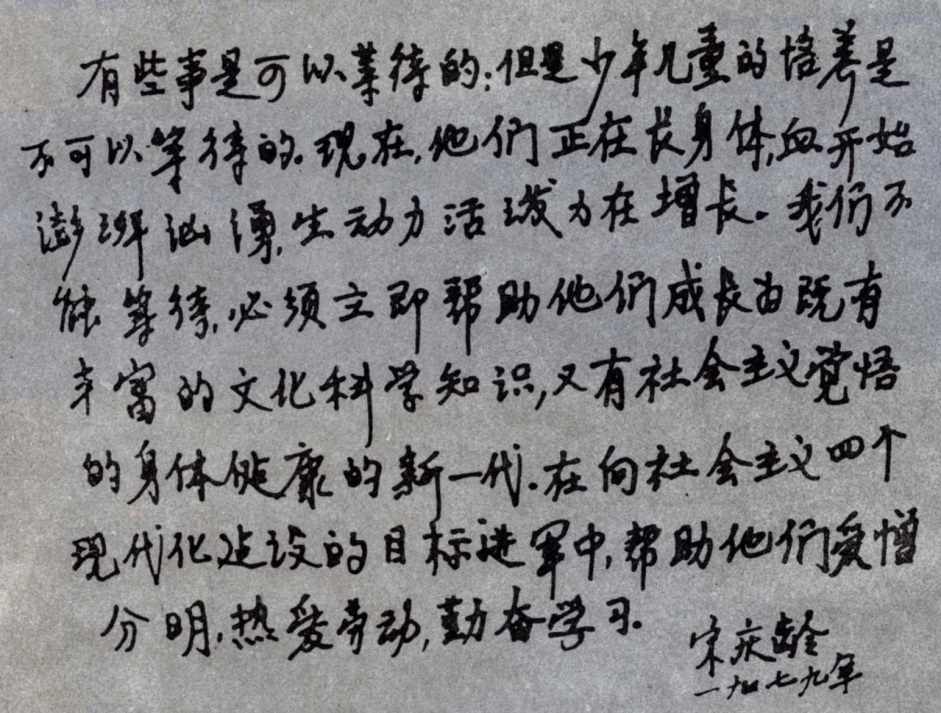 有些事是可以等待的;但是少年儿童的培养是
不可以等待的.现在,他们正在长身体,血开始
澎湃汹涌,生动力活泼力在增长.我们不
能等待,必须立即帮助他们成长为既有
丰富的文化科学知识,又有社会主义觉悟
的身体健康的新一代.在向社会主义四个
现代化建设的目标进军中,帮助他们爱憎
分明,热爱劳动,勤奋学习.
宋庆龄
一九七九年